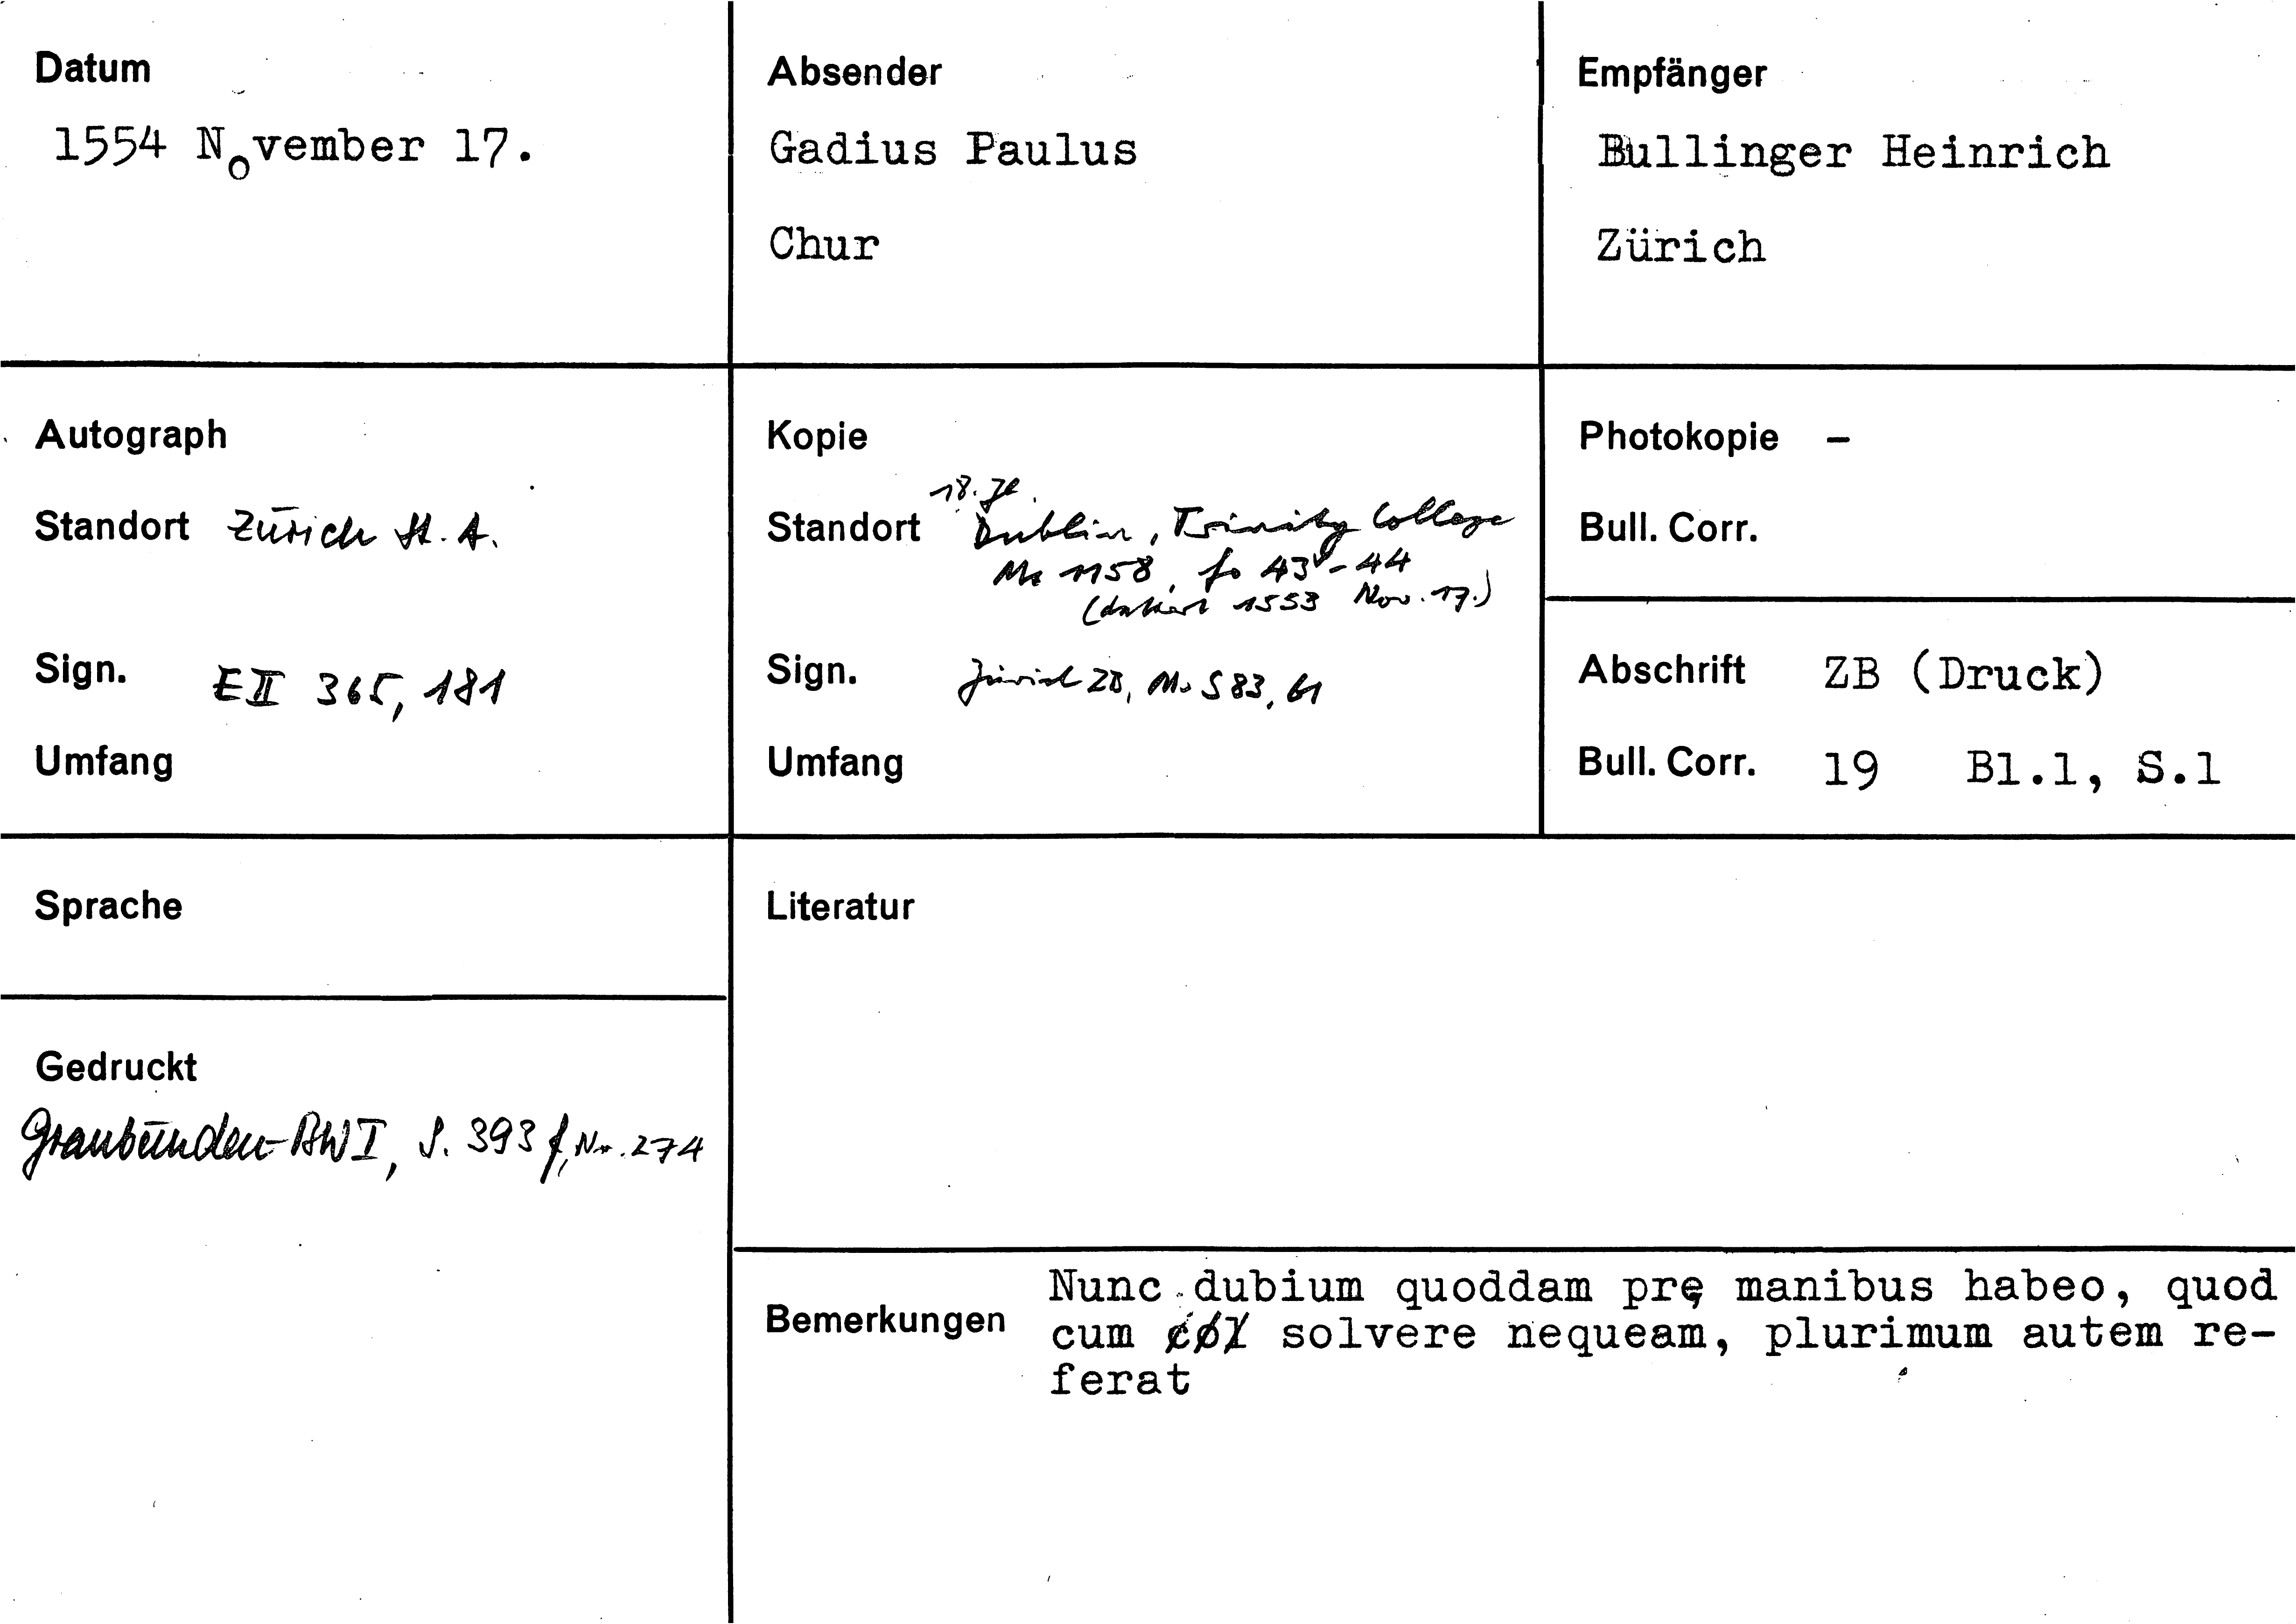 Datum
1554 November 17.
Absender
Gadius Paulus
Chur
Empfänger
Bullinger Heinrich
Zürich
Autograph
Standort Zürich St. A.
Sign. E II 365, 181
Umfang
Kopie
18. Jh.
Standort Dublin, Trinity College
Ms 1158, fo 43v-44
(datiert 1553 Nov. 17.)
Sign. Zürich ZB, Ms S 83, 61
Umfang
Photokopie –
Bull. Corr.
Abschrift ZB (Druck)
Bull. Corr. 19 Bl.1, S.1
Sprache
Literatur
Gedruckt
Graubünden-BW I, S. 393 f, Nr. 274
Bemerkungen
Nunc dubium quoddam prę manibus habeo, quod
cum solvere nequeam, plurimum autem re-
ferat